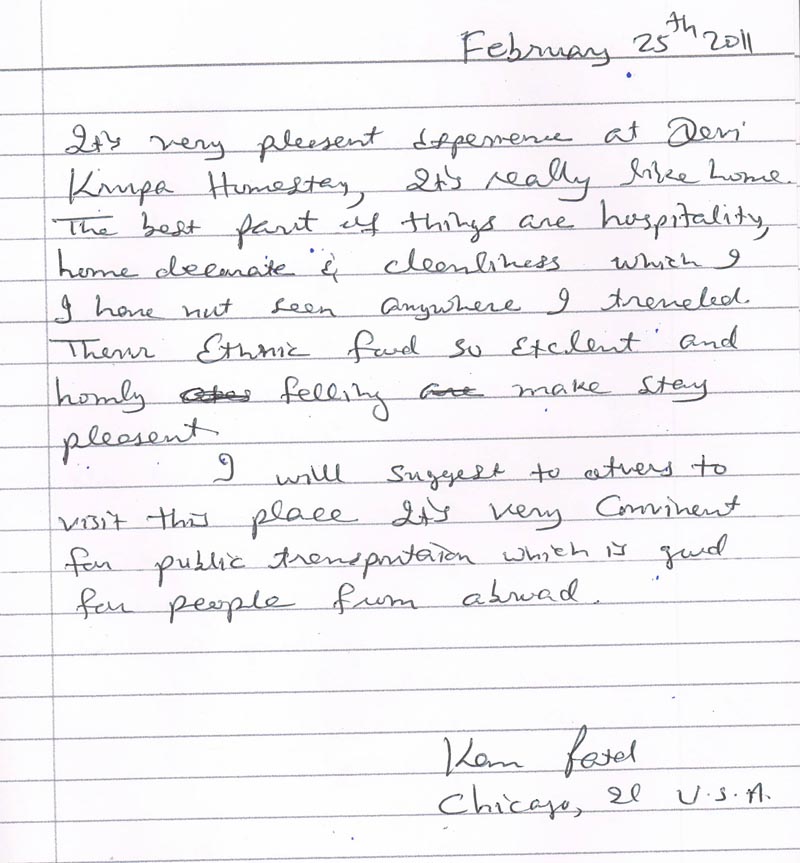 February 25th 2011
It's very pleesent Expemence at Devi
Krupa Homestay, It's really like home.
The best part of things are hospitality,
home decorate & cleenliness which I
I have not seen anywhere I treveled.
Their Ethnic food so Exclent and
homly felling make stay
pleesent
I will suggest to others to
visit this place It's very Convinent
for public trensportaion which is good
for people from abroad.
Patel
Chicago, Il U.S.A.